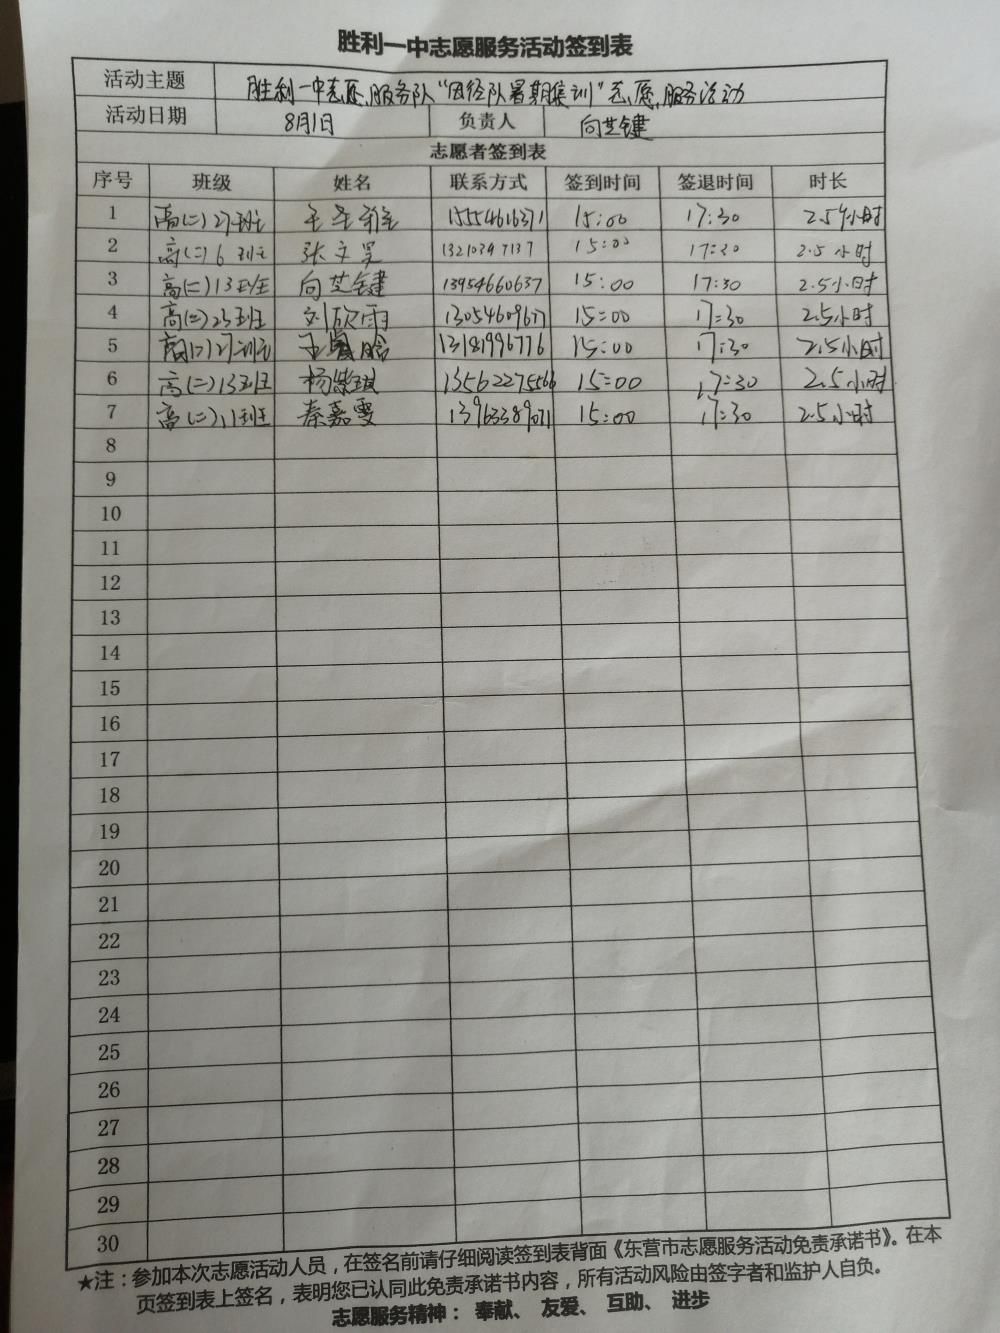 胜利一中志愿服务活动签到表
活动主题 胜利一中志愿服务队“田径队暑期集训”志愿服务活动
活动日期 8月1日 负责人 向芝键
志愿者签到表
序号 班级 姓名 联系方式 签到时间 签退时间 时长
1 高(二)27班 15554616371 15:00 17:30 2.5小时
2 高(二)6班 张文昊 13210347137 15:00 17:30 2.5小时
3 高(二)13班 向芝键 13954660637 15:00 17:30 2.5小时
4 高(二)23班 刘欣雨 13054609671 15:00 17:30 2.5小时
5 高(二)27班 13181996776 15:00 17:30 2.5小时
6 高(二)13班 13562275566 15:00 17:30 2.5小时
7 高(二)11班 秦嘉雯 13963389071 15:00 17:30 2.5小时
8
9
10
11
12
13
14
15
16
17
18
19
20
21
22
23
24
25
26
27
28
29
30
★注：参加本次志愿活动人员，在签名前请仔细阅读签到表背面《东营市志愿服务活动免责承诺书》。在本
页签到表上签名，表明您已认同此免责承诺书内容，所有活动风险由签字者和监护人自负。
志愿服务精神： 奉献、 友爱、 互助、 进步